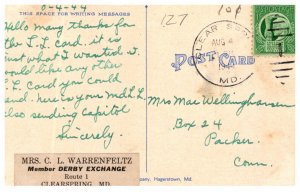 8-4-44
THIS SPACE FOR WRITING MESSAGES
Hello Many thanks for
the S.L. card, it is
just what I wanted. I
would like any other
S.L. Card you could
send. here is your Md S.L.
also sending Capitol
Sincerely.
MRS. C. L. WARRENFELTZ
Member DERBY EXCHANGE
Route 1
CLEARSPRING, MD.
127
10¢
POST CARD
CLEAR SPRING
AUG 4
MD.
Mrs Mae Wellinghausen
Box 24
Packer.
Conn.
pany, Hagerstown, Md.